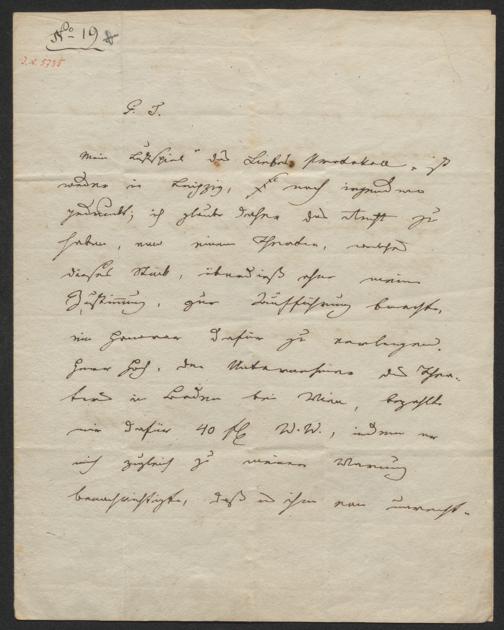 No 19
I.N. 5735
G. T.
Mein Lustspiel "das Liebes Protokoll" ist
weder in Leipzig, noch irgendwo
gedruckt; ich glaube daher das Recht zu
haben, von einem Theater, welches
dieses Stück, überdieß ohne meine
Zustimmung, zur Aufführung brachte,
ein Honorar dafür zu verlangen.
Herr Hoch, der Unternehmer des Thea-
ters in Baden bei Wien, bezahlte
mir dafür 40 fl W. W., indem er
mich zugleich zu meiner Warnung
benachrichtigte, daß es ihm von unrecht-